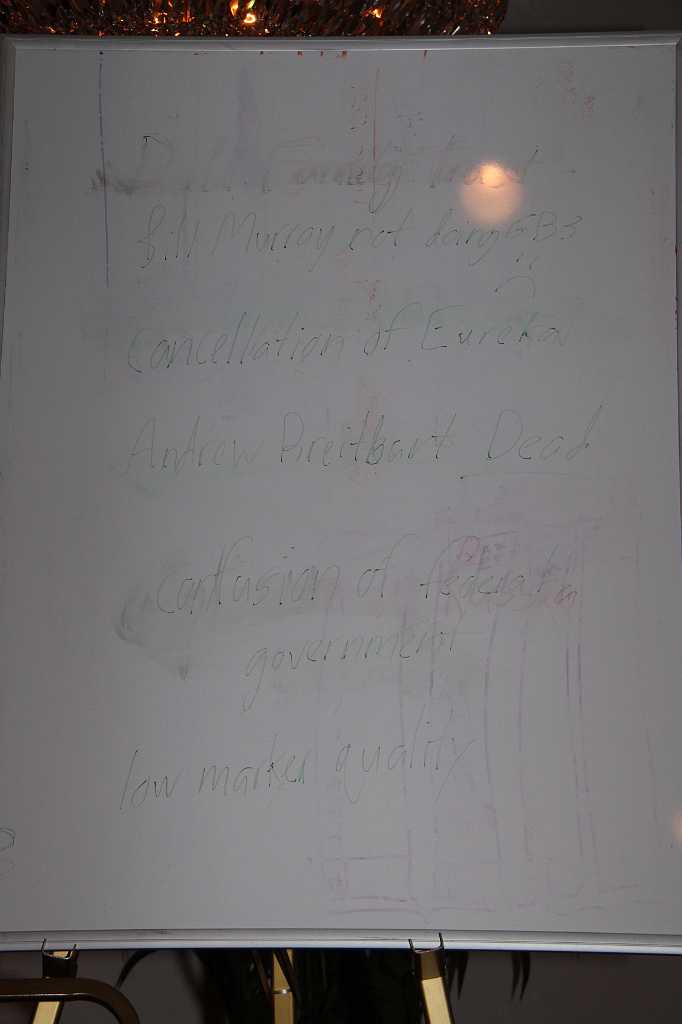 Bill Murray not doing GB3
Cancellation of Eureka
Andrew Breitbart Dead
confusion of federal
government
low marker quality